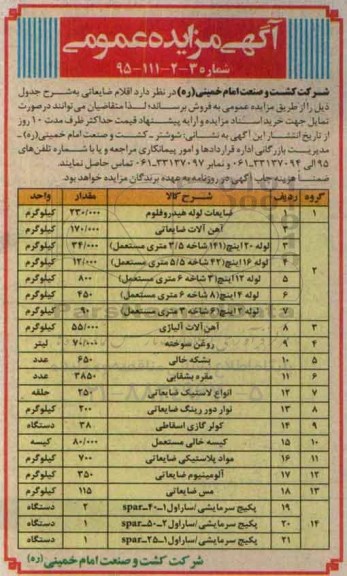 آگهی مزایده عمومی
شماره ۳-۲-۱۱۱-۹۵
شرکت کشت و صنعت امام خمینی (ره) در نظر دارد اقلام ضایعاتی به شرح جدول
ذیل را از طریق مزایده عمومی به فروش برساند، لذا متقاضیان می توانند در صورت
تمایل جهت خرید اسناد مزایده و ارایه پیشنهاد قیمت حداکثر ظرف مدت ۱۰ روز
از تاریخ انتشار این آگهی به نشانی: شوشتر - کشت و صنعت امام خمینی (ره) -
مدیریت بازرگانی اداره قراردادها و امور پیمانکاری مراجعه و یا با شماره تلفن های
۹۵ الی ۳۳۱۳۷۰۹۴-۰۶۱ و نمابر ۳۳۱۳۷۰۹۷-۰۶۱ تماس حاصل نمایند.
ضمنا هزینه چاپ آگهی در روزنامه به عهده برندگان مزایده خواهد بود.
گروه ردیف شرح کالا مقدار واحد
۱ ۱ ضایعات لوله هیدروفلوم ۲۳۰/۰۰۰ کیلوگرم
۲ ۲ آهن آلات ضایعاتی ۱۷۰/۰۰۰ کیلوگرم
۳ لوله ۲۰ اینچ (۱۴۱ شاخه ۳/۵ متری مستعمل) ۳۴/۰۰۰ کیلوگرم
۴ لوله ۱۶ اینچ (۴۲ شاخه ۵/۵ متری مستعمل) ۱۲/۰۰۰ کیلوگرم
۵ لوله ۱۲ اینچ (۳ شاخه ۶ متری مستعمل) ۸۰۰ کیلوگرم
۶ لوله ۴ اینچ (۸ شاخه ۶ متری مستعمل) ۴۵۰ کیلوگرم
۷ لوله ۲ اینچ (۶ شاخه ۳ متری مستعمل) ۹۰ کیلوگرم
۳ ۸ آهن آلات آلیاژی ۵۵/۰۰۰ کیلوگرم
۴ ۹ روغن سوخته ۷۰/۰۰۰ لیتر
۵ ۱۰ بشکه خالی ۶۵۰ عدد
۶ ۱۱ مقره بشقابی ۳۸۵۰ عدد
۷ ۱۲ انواع لاستیک ضایعاتی ۲۵۰ حلقه
۸ ۱۳ نوار دور رینگ ضایعاتی ۲۰۰ کیلوگرم
۹ ۱۴ کولر گازی اسقاطی ۳۸ دستگاه
۱۰ ۱۵ کیسه خالی مستعمل ۸۰/۰۰۰ کیسه
۱۱ ۱۶ مواد پلاستیکی ضایعاتی ۷۰۰ کیلوگرم
۱۲ ۱۷ آلومینیوم ضایعاتی ۳۵۰ کیلوگرم
۱۳ ۱۸ مس ضایعاتی ۱۱۵ کیلوگرم
۱۴ ۱۹ پکیج سرمایشی/ساراول۱-۴۰-spar ۲ دستگاه
۲۰ پکیج سرمایشی/ساراول۲-۵۰-spar ۱ دستگاه
۲۱ پکیج سرمایشی/ساراول۱-۲۵-spar ۱ دستگاه
شرکت کشت و صنعت امام خمینی (ره)